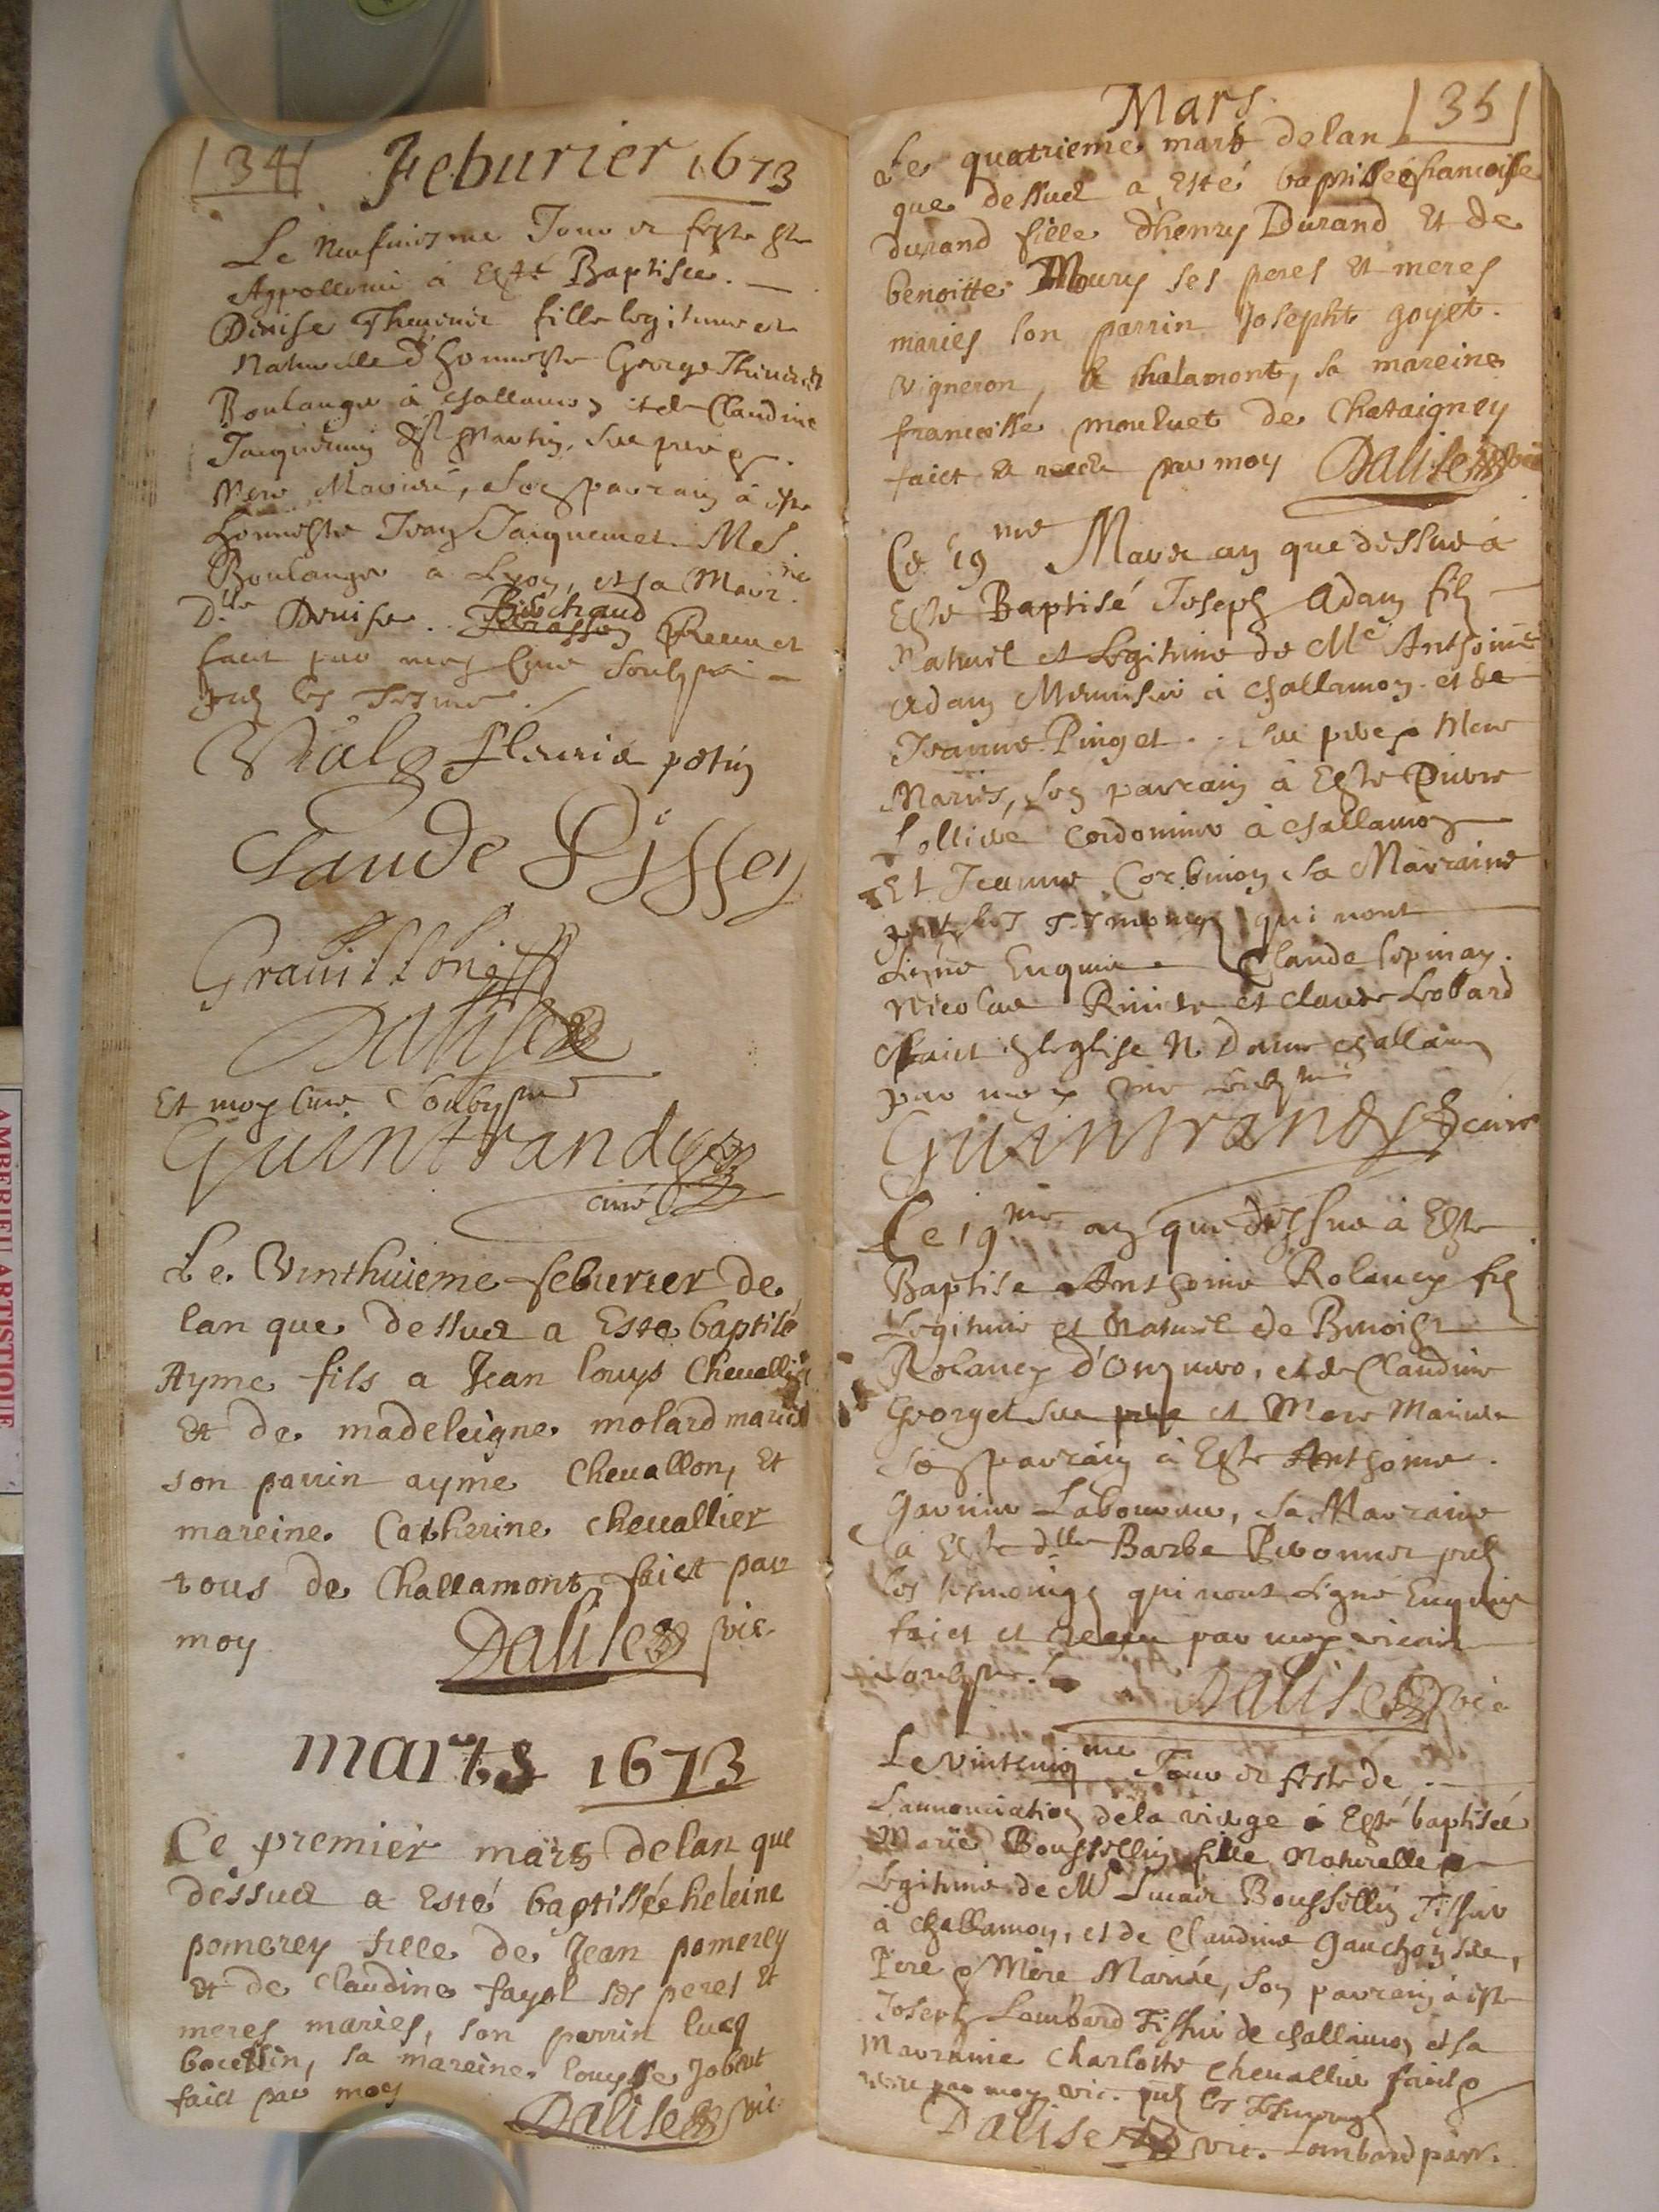 |34|
Feburier 1673
Le Neufuiesme Jour et feste Ste
Appollonie à Esté Baptisée.
Denise Theuenet fille legitime et
Naturelle d'honneste George Theuenet
Boulanger à Challamon et de Claudine
St Martin, ses pere &
Mere Mariés, Son parrain à este
honneste Jean Jacquemet Me
Boulanger a Lyon, et sa Marine
Dlle Denise Bischaud Receu et
faict par moy Curé soubsné
Fleurie petin
Claude Dissey
Grauillon
Dalise
Et moy Curé Soubsné
Guintrandy
curé
Le Vinthuieme feburier de
lan que dessus a Esté baptisé
Ayme fils a Jean louys Cheuallier
Et de madeleigne molard mariés
son parrin ayme Cheuallon, Et
mareine Catherine cheuallier
tous de Challamont faict par
moy Dalise vic
marts 1673
Ce premier mars delan que
dessus a Esté baptissée heleine
pomerey fille de Jean pomerey
et de Claudine fayol ses peres et
meres mariés, son parrin lucq
bocellin, sa mareine louysse Jobert
faict par moy Dalise vic
|35|
Mars
Le quatrieme mars delan
que dessus a Esté baptisée francoise
durand fille dhenry Durand Et de
benoitte Moury ses peres et meres
mariés son parrin Josepht goyet
vigneron, de chalamont, sa mareine
francoisse mouluet de Chataigney
faict et par moy Dalise vic
Ce 19me Mars an que dessus à
Este Baptisé Joseph Adam filz
Naturel et Legitime de Me Anthoine
Adam Menusier à Challamon et de
Jeanne Pinget ses pere & Mere
Mariés, son parrain à Este Pierre
Lollieue Cordonnier à challamon
Et Jeanne Corbinon sa Marraine
les qui nont
signé Enquis Claude Espinay.
Nicolas et Claude Lobard
Faict Eglise N. Dame Challamon
par moy Curé soubsné
Guintrandy curé
Ce 19me an que dessus a Este
Baptise Anthoine Rolancy filz
Legitime et Naturel de Benoist
Rolancy d'Onzuero, et de Claudine
Georget ses pere et Mere Mariés
Son parrain à Este Anthoine
Garnier Laboureur, sa Marraine
a Este dlle Barbe Peronnet
les tesmoings qui nont signé Enquis
faict et Receu par moy vicaire
soubsné Dalise vic
Le vintcinqme Jour et feste de
Lannonciation dela vierge à Esté baptisée
Marie Boussellin fille Naturelle &
Legitime de Me Boussellin Tissier
à challamon, et de Claudine gauchon ses
Pere & Mere Mariés, son parrain à este
Joseph Lombard Tissier de challamon et sa
Marraine Charlotte cheuallier faict &
receu par moy vic. les Tesmoings
Dalise vic. Lombard parr.